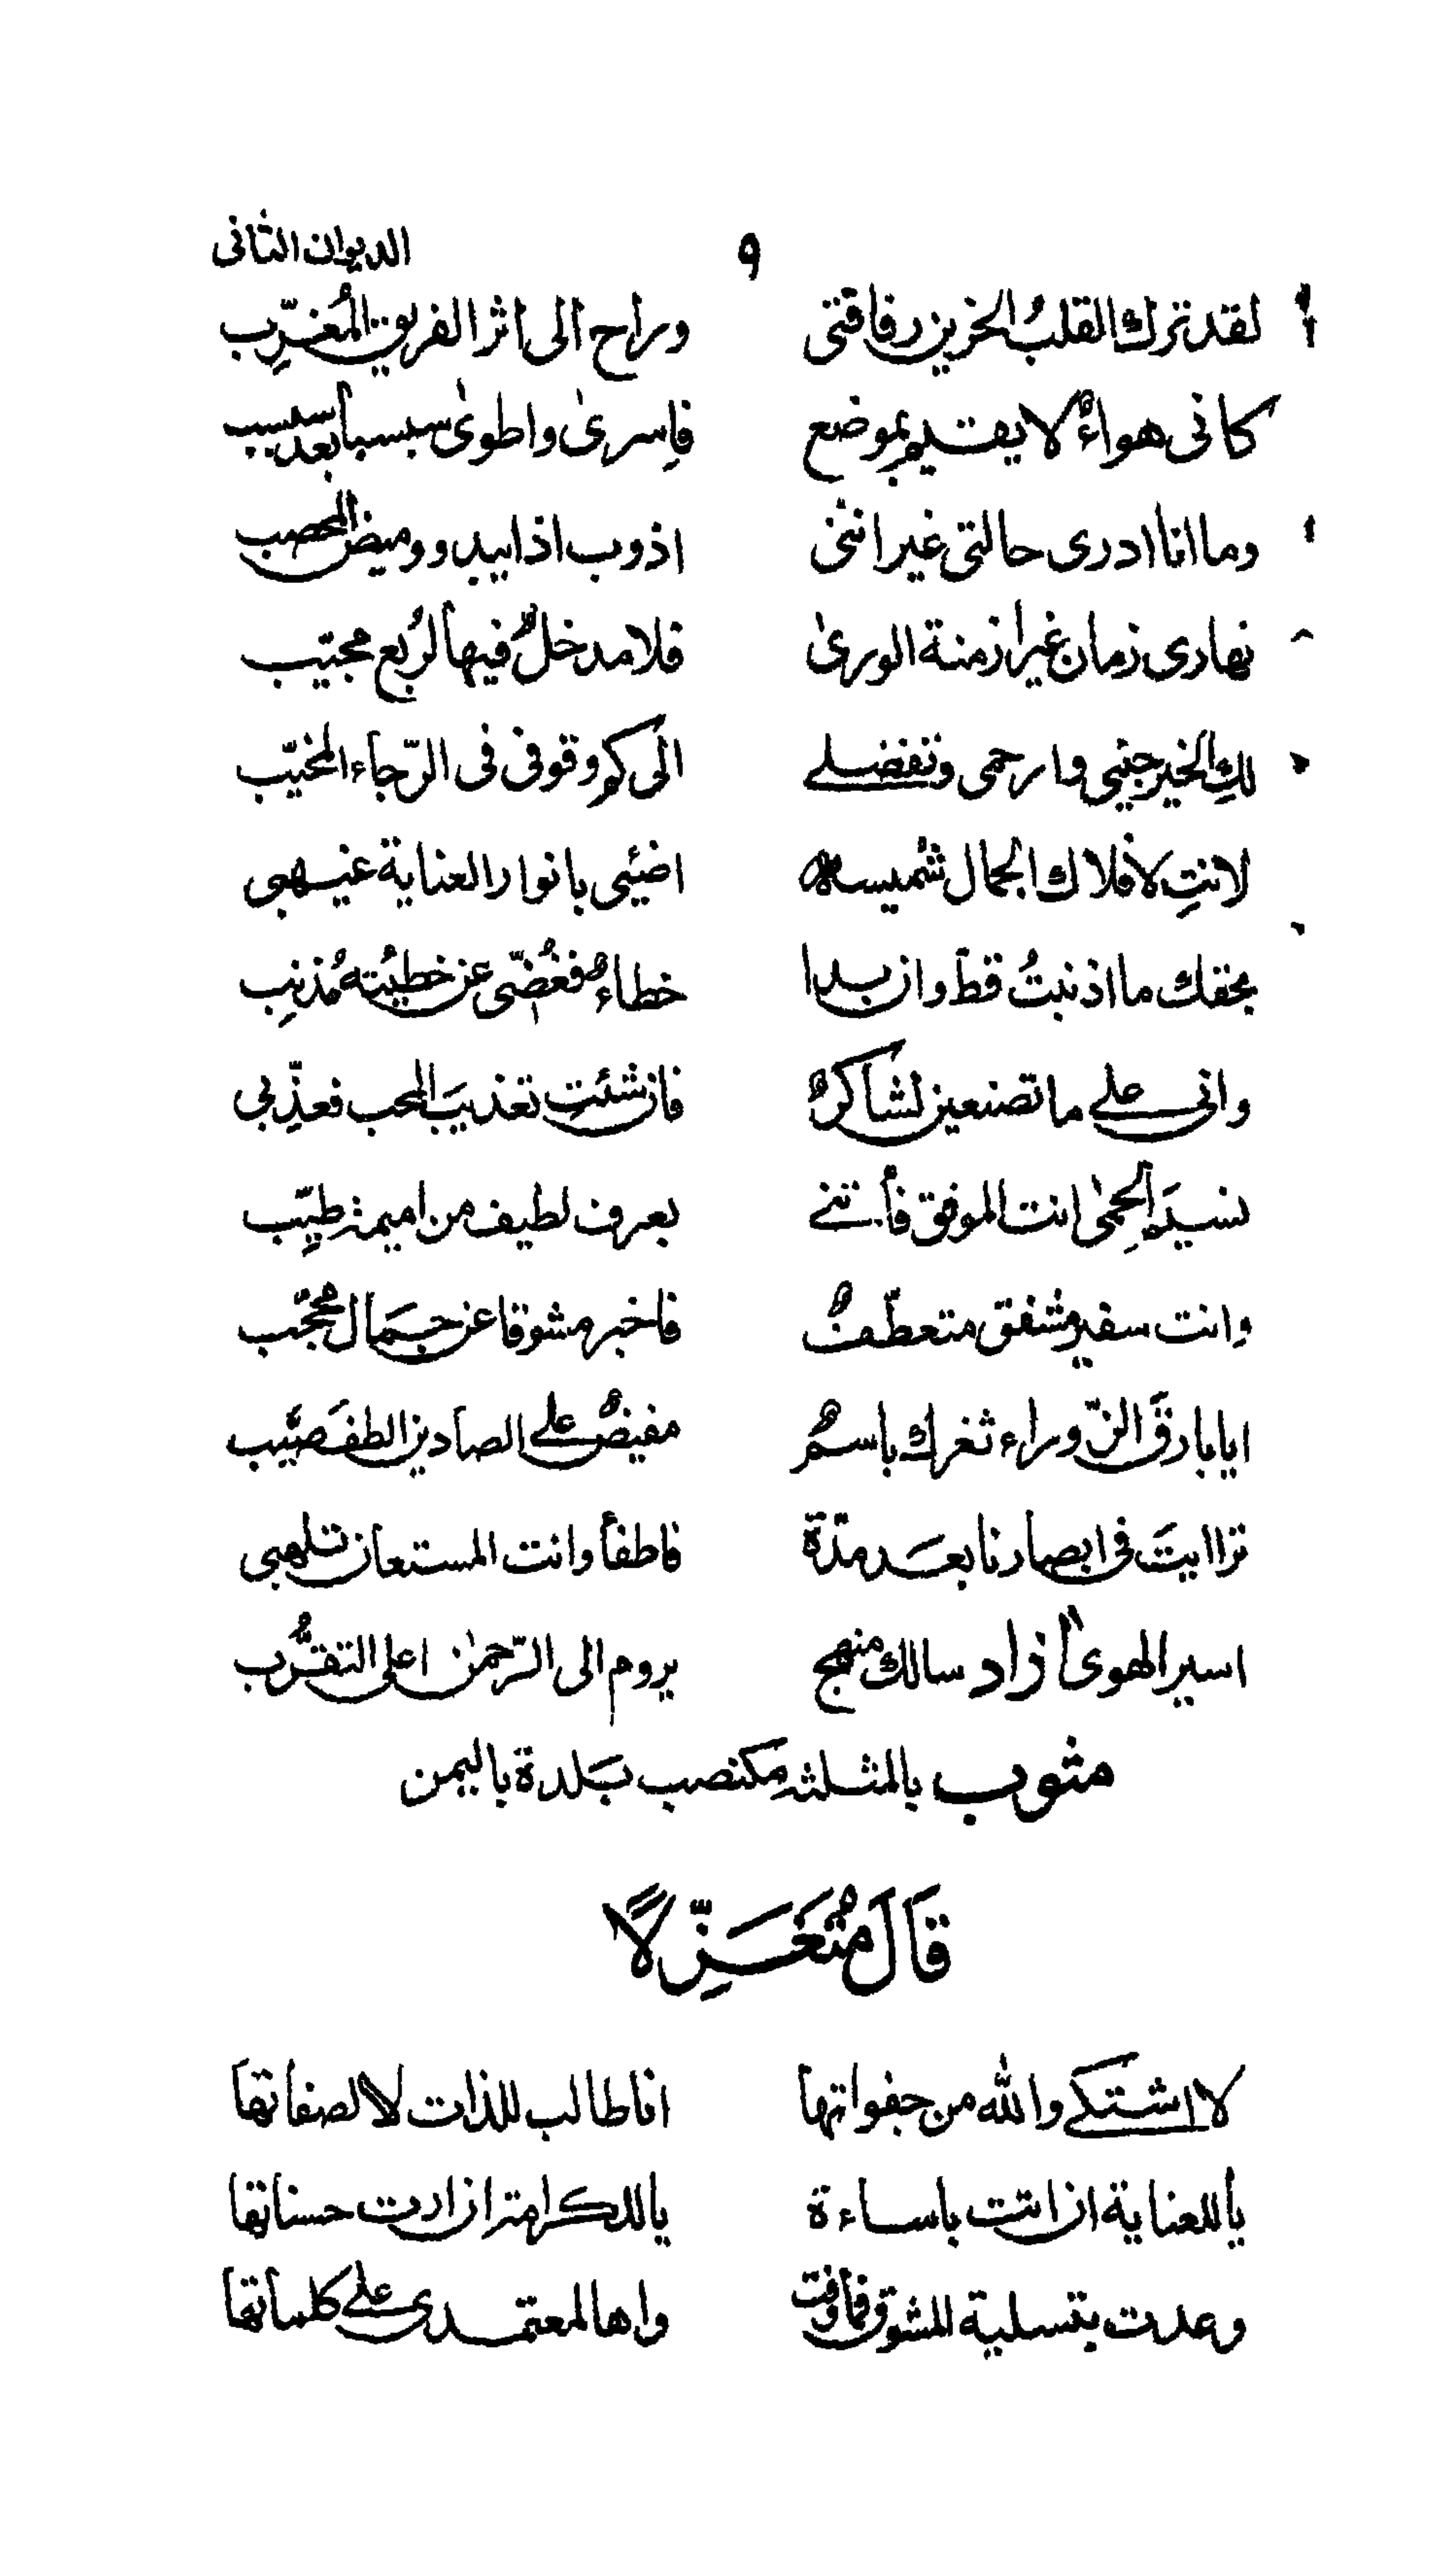 ٩ الديوان الثانى
لقد ترك القلبُ الحزين رفاقتى وراح الى اثر الفريق المُغرِّب
كانى هواءٌ لا يقيم بموضع فاسرىٰ واطوىٰ سبسبا بعد سبسب
وما انا ادرى حالتى غير اننى اذوب اذا يبدو وميض المحصب
نهارى زمان غير ازمنة الورىٰ فلا مدخلٌ فيها لرُبع مجيّب
لكِ الخير جنبى وارحمى وتفضلے الى كم وقوفى فى الرّجاء المخيّب
لانتِ لافلاك الجمال شميسة اضيئى بانوار العناية غيهبى
بحقك ما اذنبتُ قطّ وان بدا خطاءٌ فغُضّى عن خطيئته مُذنِب
وانى علے ما تصنعين لشاكرٌ فان شئتِ تعذيبَ المحب فعذِّبى
نسيمَ الحِمىٰ انت الموفق فأتنے بعرف لطيف من اميمة طيّب
وانت سفير مشفق متعطّفٌ فاخبر مشوقا عن جمال محجّب
ايا بارقَ الزّوراء ثغرك باسمٌ مفيضٌ علے الصادين الطفَ صيّب
تراايتَ فى ابصارنا بعد مدّة فاطفأ وانت المستعان تلهبى
اسير الهوىٰ آزاد سالك منهج يروم الى الرّحمٰن اعلى التقرُّب
مثوب بالمثلثة كمنصب بَلدة باليمن
قَالَ مُتَغَزِّلًا
لا اشتكے والله من جفواتها انا طالب للذات لا لصفاتها
يا للعناية ان اتت باساءة يا للكرامة ان ارت حسناتها
وعدت بتسلية المشوق فما وفت واها لمعتمدى علے كلماتها